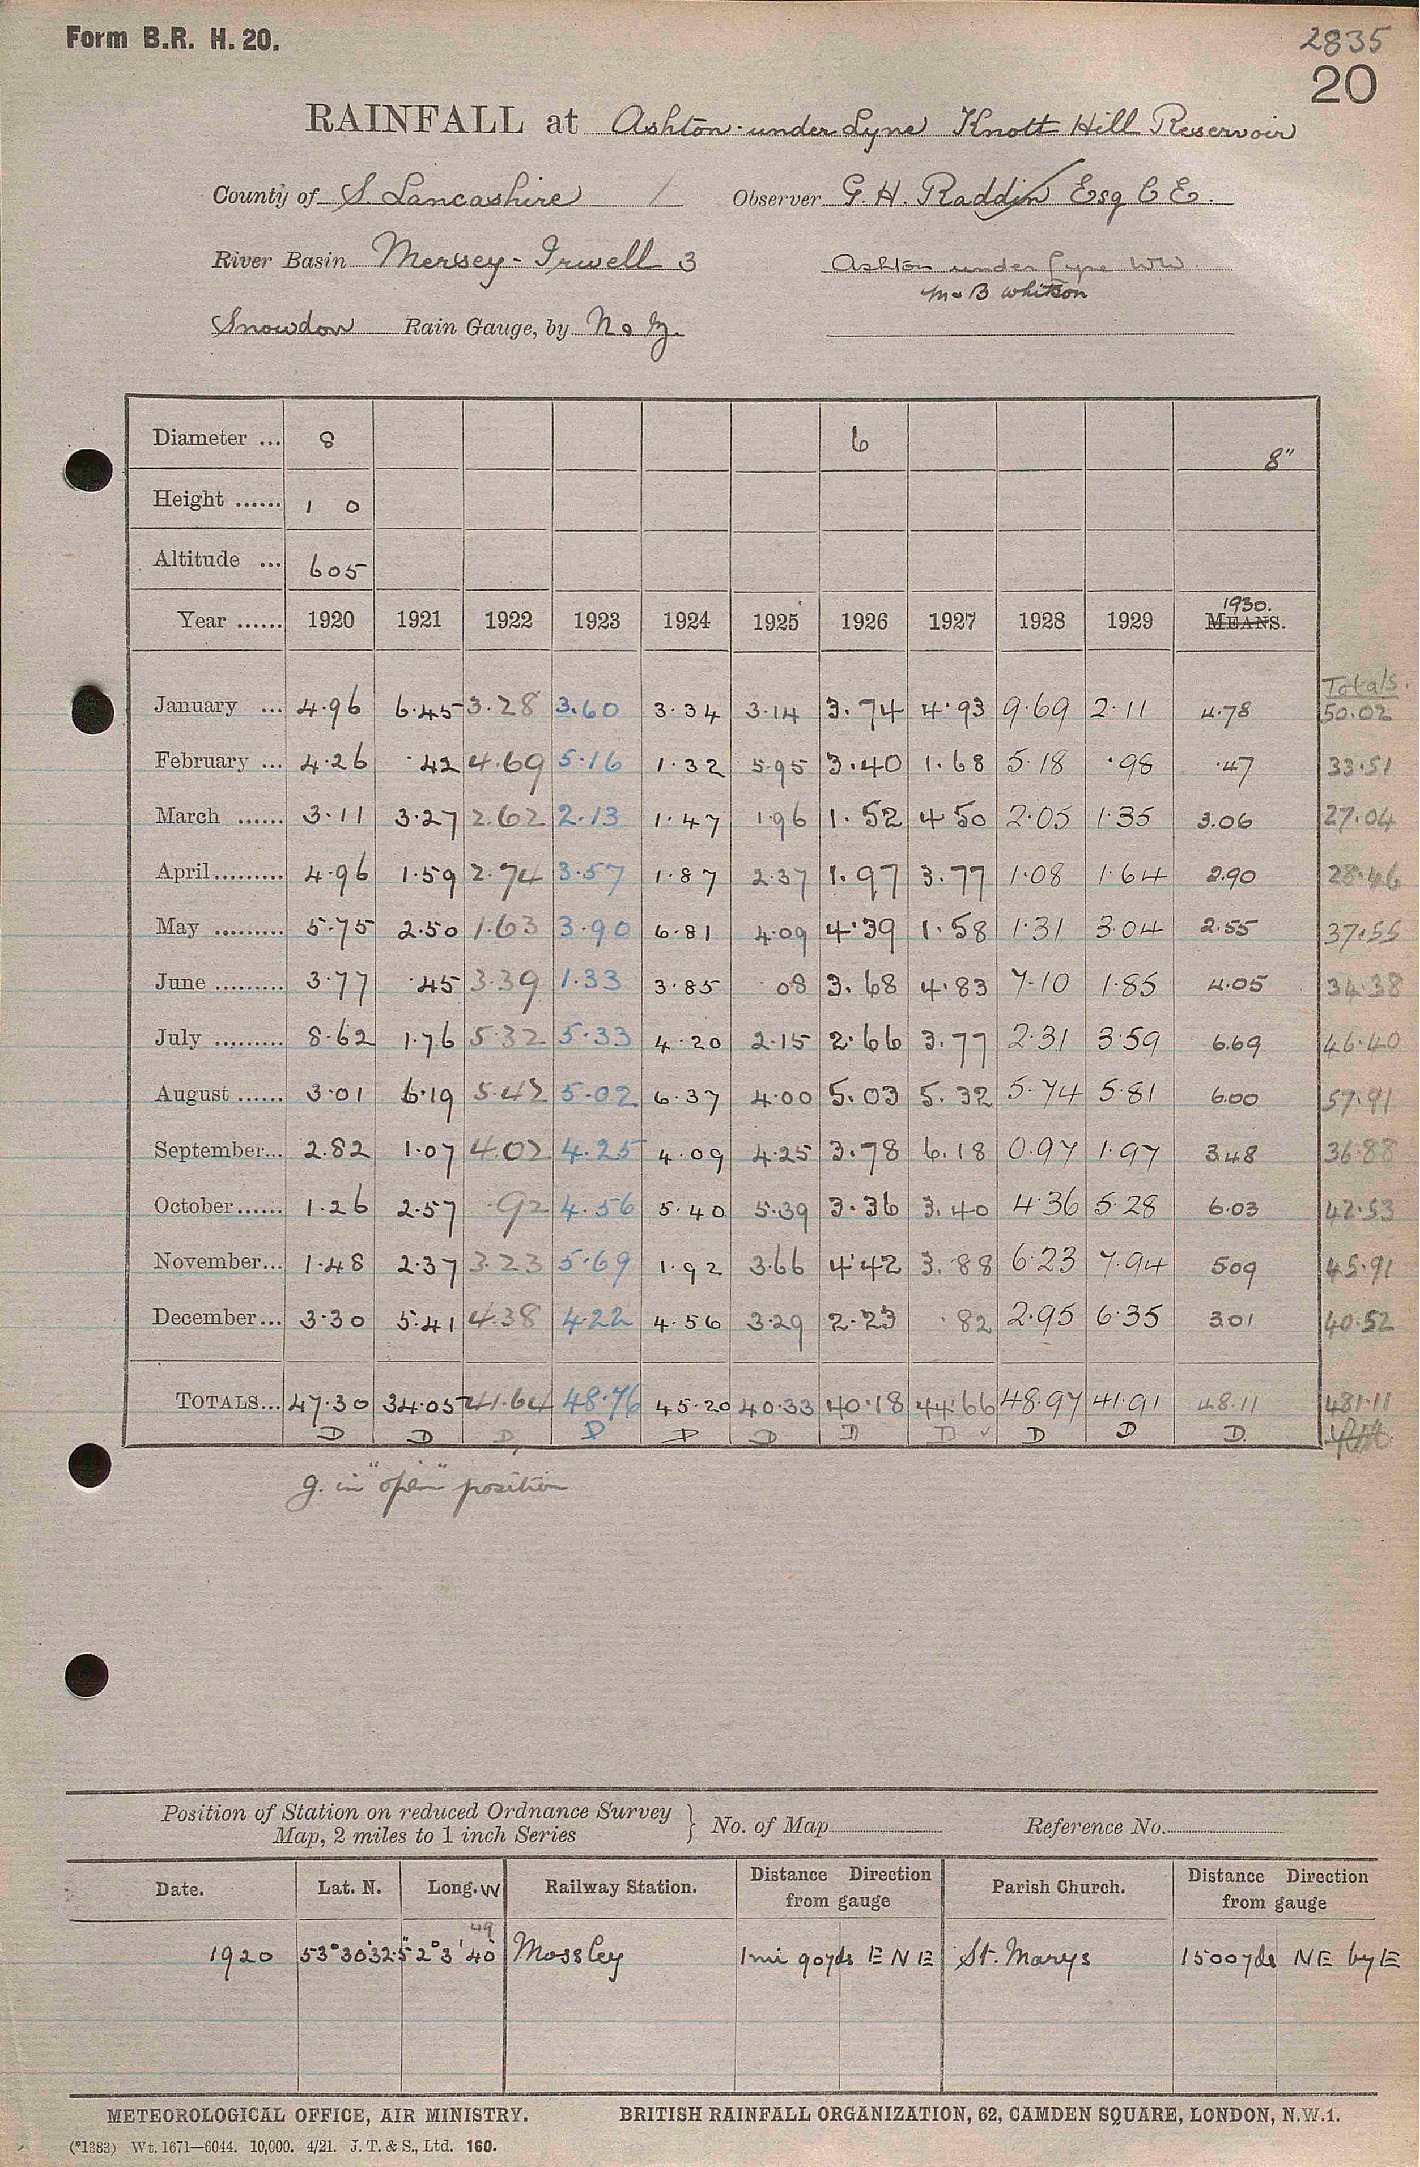 Form B.R. H. 20.
2835
20
RAINFALL at Ashton-under-Lyne Knott Hill Reservoir
County of S. Lancashire / Observer G. H. Raddin Esq C E.
River Basin Mersey-Irwell 3 Ashton under Lyne WW.
Mr B Whitson
Snowdon Rain Gauge, by N & Z.
Diameter ... 8 6 8"
Height ...... 1 0
Altitude ... 605
1930.
Year ...... 1920 1921 1922 1923 1924 1925 1926 1927 1928 1929 MEANS.
Totals.
January ... 4.96 6.45 3.28 3.60 3.34 3.14 3.74 4.93 9.69 2.11 4.78 50.02
February ... 4.26 .42 4.69 5.16 1.32 5.95 3.40 1.68 5.18 .98 .47 33.51
March ...... 3.11 3.27 2.62 2.13 1.47 1.96 1.52 4.50 2.05 1.35 3.06 27.04
April......... 4.96 1.59 2.74 3.57 1.87 2.37 1.97 3.77 1.08 1.64 2.90 28.46
May ......... 5.75 2.50 1.63 3.90 6.81 4.09 4.39 1.58 1.31 3.04 2.55 37.55
June ......... 3.77 .45 3.39 1.33 3.85 .08 3.68 4.83 7.10 1.85 4.05 34.38
July ......... 8.62 1.76 5.32 5.33 4.20 2.15 2.66 3.77 2.31 3.59 6.69 46.40
August ...... 3.01 6.19 5.42 5.02 6.37 4.00 5.03 5.32 5.74 5.81 6.00 57.91
September... 2.82 1.07 4.02 4.25 4.09 4.25 3.78 6.18 0.97 1.97 3.48 36.88
October...... 1.26 2.57 .92 4.56 5.40 5.39 3.36 3.40 4.36 5.28 6.03 42.53
November... 1.48 2.37 3.23 5.69 1.92 3.66 4.42 3.88 6.23 7.94 5.09 45.91
December... 3.30 5.41 4.38 4.22 4.56 3.29 2.23 .82 2.95 6.35 3.01 40.52
TOTALS... 47.30 34.05 41.64 48.76 45.20 40.33 40.18 44.66 48.97 41.91 48.11 481.11
D D D D D D D D ✓ D D D.
g. in "open" position
Position of Station on reduced Ordnance Survey
Map, 2 miles to 1 inch Series } No. of Map Reference No.
Date. Lat. N. Long. W Railway Station. Distance Direction from gauge Parish Church. Distance Direction from gauge
49
1920 53°30'32.5" 2°3'40 Mossley 1 mi 90 yds E N E St. Marys 1500 yds NE by E
METEOROLOGICAL OFFICE, AIR MINISTRY. BRITISH RAINFALL ORGANIZATION, 62, CAMDEN SQUARE, LONDON, N.W.1.
(*1383) Wt. 1671—6044. 10,000. 4/21. J. T. & S., Ltd. 160.